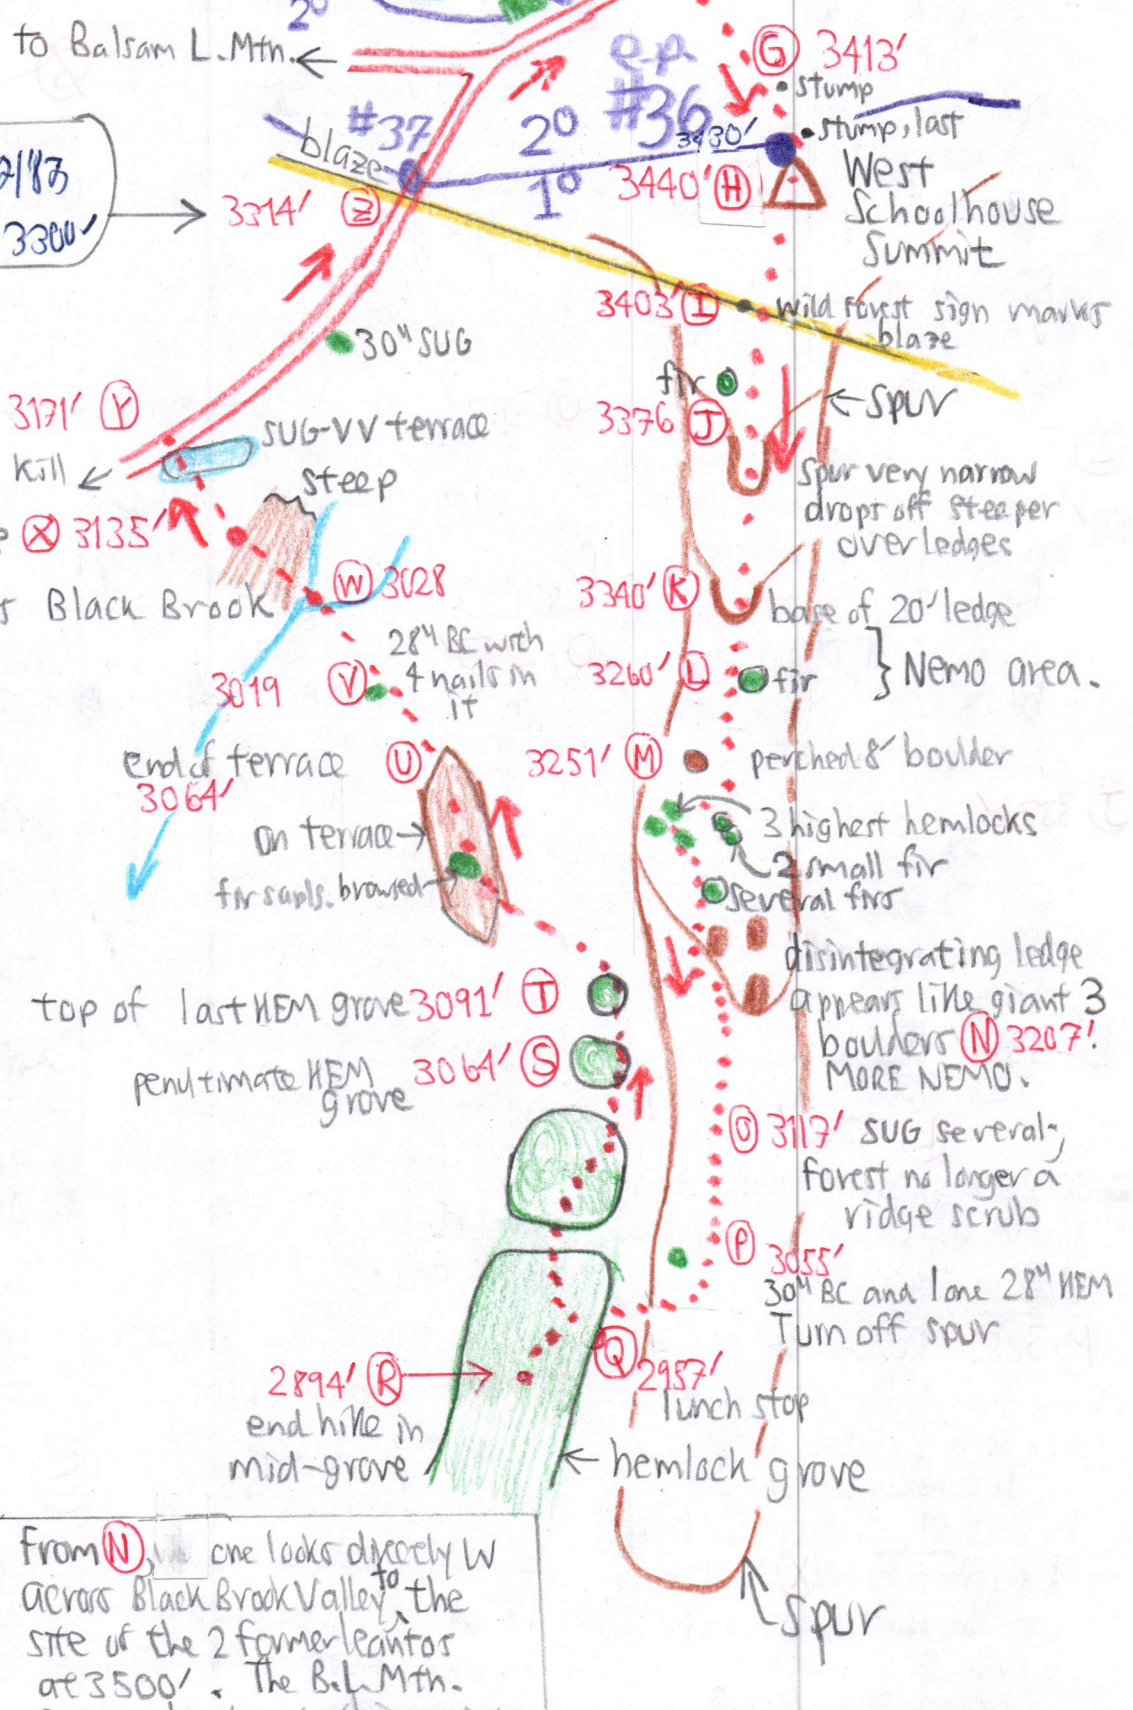 2°
to Balsam L. Mtn.
e.p.
G 3413'
stump
#37
2°
#36
3430'
stump, last
blaze
1°
3440' H
West
Schoolhouse
Summit
2/83
3300'
3314' Z
3403' I
wild forest sign marks
blaze
30" SUG
fir
spur
3171' Y
3376 J
SUG-VV terrace
Kill
steep
Spur very narrow
drops off steeper
over ledges
X 3135'
3340' K
W 3028
base of 20' ledge
s Black Brook
28" BC with
4 nails in
it
3260' L
fir
Nemo area.
3019 V
end of terrace U
3064'
3251' M
perched 8' boulder
on terrace
3 highest hemlocks
2 small fir
fir sapls. browsed
several firs
disintegrating ledge
appears like giant 3
boulders N 3207'.
MORE NEMO.
top of last HEM grove 3091' T
penultimate HEM
grove
3064' S
O 3117' SUG several;
forest no longer a
ridge scrub
P 3055'
30" BC and lone 28" HEM
Turn off spur
Q 2957'
lunch stop
2894' R
end hike in
mid-grove
hemlock grove
From N, one looks directly W
across Black Brook Valley to the
site of the 2 former leantos
at 3500'. The B.L. Mtn.
spur